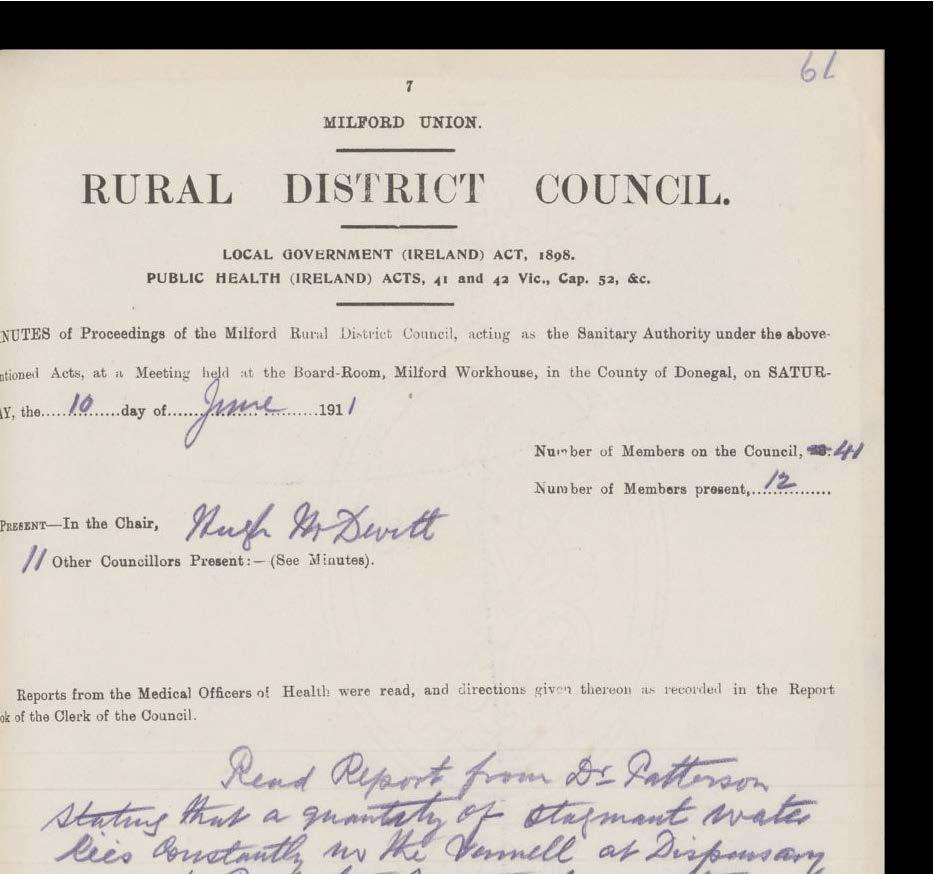 61
7
MILFORD UNION.
RURAL DISTRICT COUNCIL.
LOCAL GOVERNMENT (IRELAND) ACT, 1898.
PUBLIC HEALTH (IRELAND) ACTS, 41 and 42 Vic., Cap. 52, &c.
NUTES of Proceedings of the Milford Rural District Council, acting as the Sanitary Authority under the above-
ntioned Acts, at a Meeting held at the Board-Room, Milford Workhouse, in the County of Donegal, on SATUR-
AY, the.....10.....day of......June......1911
Number of Members on the Council, 41
Number of Members present,...12...
PRESENT—In the Chair, Hugh McDevitt
11 Other Councillors Present:—(See Minutes).
Reports from the Medical Officers of Health were read, and directions given thereon as recorded in the Report
ok of the Clerk of the Council.
Read Report from Dr Patterson
stating that a quantity of stagnant water
lies constantly in the Vennell at Dispensary